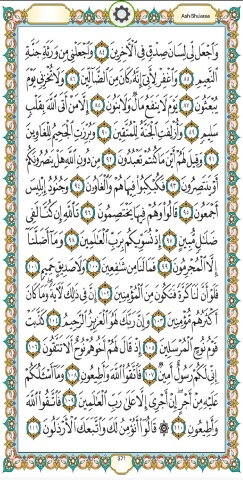 Ash-Shuaraa
وَاجْعَل لِّي لِسَانَ صِدْقٍ فِي الْآخِرِينَ ٨٤ وَاجْعَلْنِي مِن وَرَثَةِ جَنَّةِ
النَّعِيمِ ٨٥ وَاغْفِرْ لِأَبِي إِنَّهُ كَانَ مِنَ الضَّالِّينَ ٨٦ وَلَا تُخْزِنِي يَوْمَ
يُبْعَثُونَ ٨٧ يَوْمَ لَا يَنفَعُ مَالٌ وَلَا بَنُونَ ٨٨ إِلَّا مَنْ أَتَى اللَّهَ بِقَلْبٍ
سَلِيمٍ ٨٩ وَأُزْلِفَتِ الْجَنَّةُ لِلْمُتَّقِينَ ٩٠ وَبُرِّزَتِ الْجَحِيمُ لِلْغَاوِينَ
٩١ وَقِيلَ لَهُمْ أَيْنَ مَا كُنتُمْ تَعْبُدُونَ ٩٢ مِن دُونِ اللَّهِ هَلْ يَنصُرُونَكُمْ
أَوْ يَنتَصِرُونَ ٩٣ فَكُبْكِبُوا فِيهَا هُمْ وَالْغَاوُونَ ٩٤ وَجُنُودُ إِبْلِيسَ
أَجْمَعُونَ ٩٥ قَالُوا وَهُمْ فِيهَا يَخْتَصِمُونَ ٩٦ تَاللَّهِ إِن كُنَّا لَفِي
ضَلَالٍ مُّبِينٍ ٩٧ إِذْ نُسَوِّيكُم بِرَبِّ الْعَالَمِينَ ٩٨ وَمَا أَضَلَّنَا
إِلَّا الْمُجْرِمُونَ ٩٩ فَمَا لَنَا مِن شَافِعِينَ ١٠٠ وَلَا صَدِيقٍ حَمِيمٍ ١٠١
فَلَوْ أَنَّ لَنَا كَرَّةً فَنَكُونَ مِنَ الْمُؤْمِنِينَ ١٠٢ إِنَّ فِي ذَٰلِكَ لَآيَةً وَمَا كَانَ
أَكْثَرُهُم مُّؤْمِنِينَ ١٠٣ وَإِنَّ رَبَّكَ لَهُوَ الْعَزِيزُ الرَّحِيمُ ١٠٤ كَذَّبَتْ
قَوْمُ نُوحٍ الْمُرْسَلِينَ ١٠٥ إِذْ قَالَ لَهُمْ أَخُوهُمْ نُوحٌ أَلَا تَتَّقُونَ ١٠٦
إِنِّي لَكُمْ رَسُولٌ أَمِينٌ ١٠٧ فَاتَّقُوا اللَّهَ وَأَطِيعُونِ ١٠٨ وَمَا أَسْأَلُكُمْ
عَلَيْهِ مِنْ أَجْرٍ إِنْ أَجْرِيَ إِلَّا عَلَىٰ رَبِّ الْعَالَمِينَ ١٠٩ فَاتَّقُوا اللَّهَ
وَأَطِيعُونِ ١١٠ قَالُوا أَنُؤْمِنُ لَكَ وَاتَّبَعَكَ الْأَرْذَلُونَ ١١١
371